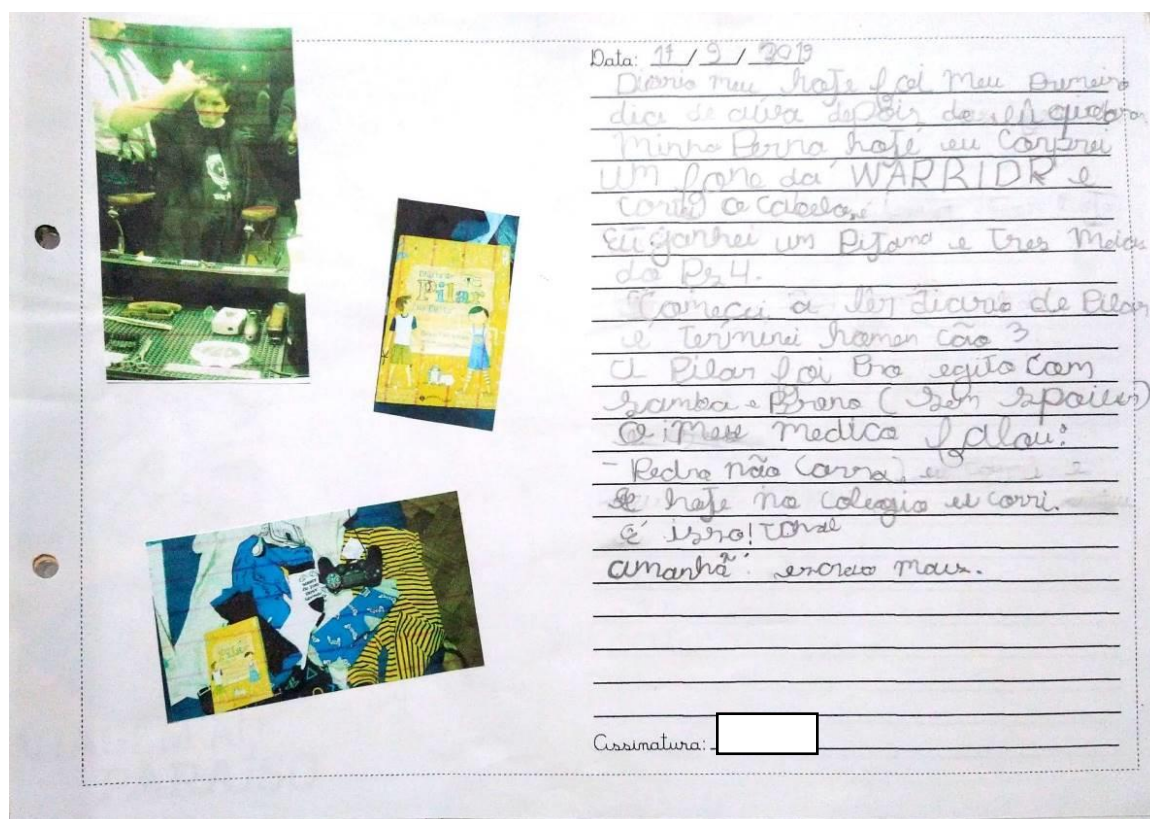 Data: 11/9/2019
Diário meu hoje foi meu primeiro
dia de aula depois de eu quebrar
Minha Perna, hoje eu comprei
um fone da WARRIOR e
cortei o cabelo,
Eu ganhei um Pijama e Tres Meias
do Ps4.
Começei a ler diario de Pilar
e Terminei homem cão 3
A Pilar foi Pro egito Com
Samba e Breno (Sem spoiler)
O meu medico falou:
- Pedro não Corra, e
hoje no colegio eu corri.
É isso! Tchal
amanhã escrevo mais.
Assinatura:
Pilar
Pilar